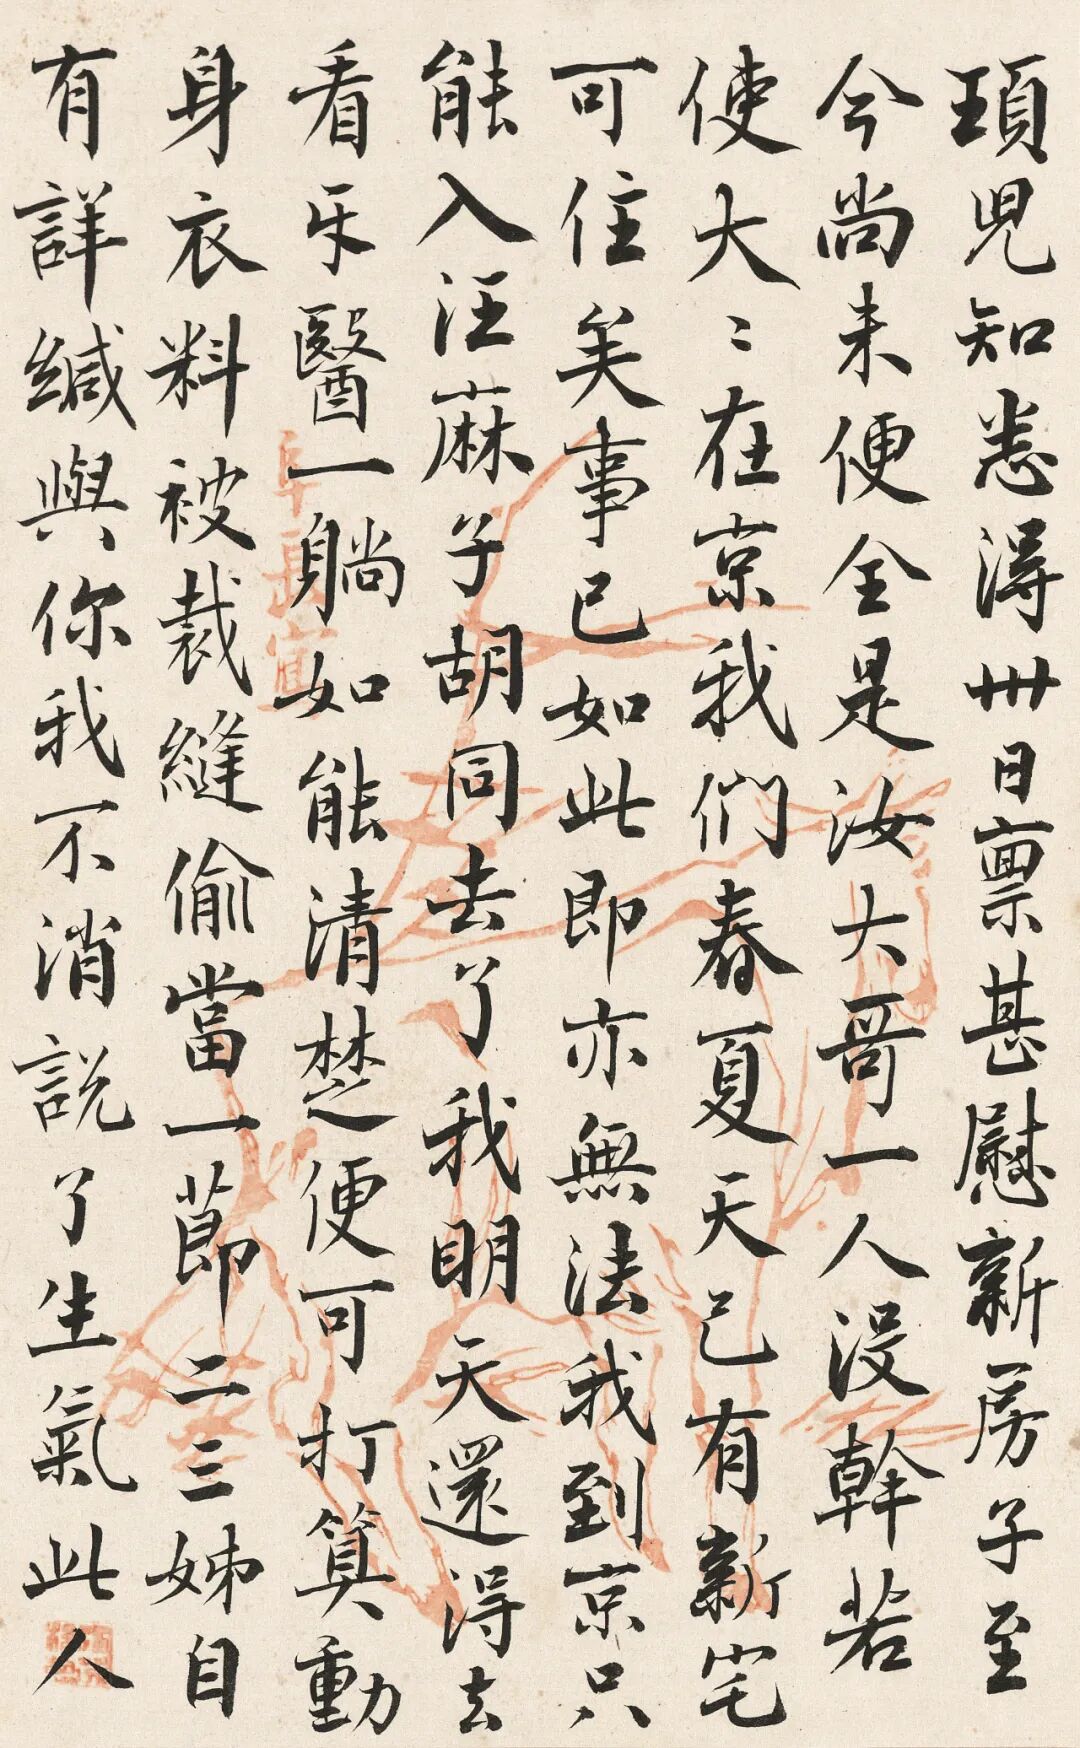 頊兒知悉得卅日禀甚慰新房子至
今尚未便全是汝大哥一人没幹若
使大〻在京我們春夏天已有新宅
可住美事已如此即亦無法我到京只
能入汪蔴子胡同去了我明天還得去
看牙醫一躺如能清楚便可打算動
身衣料被裁縫偷當一節二三姊自
有詳緘與你我不消説了生氣此人